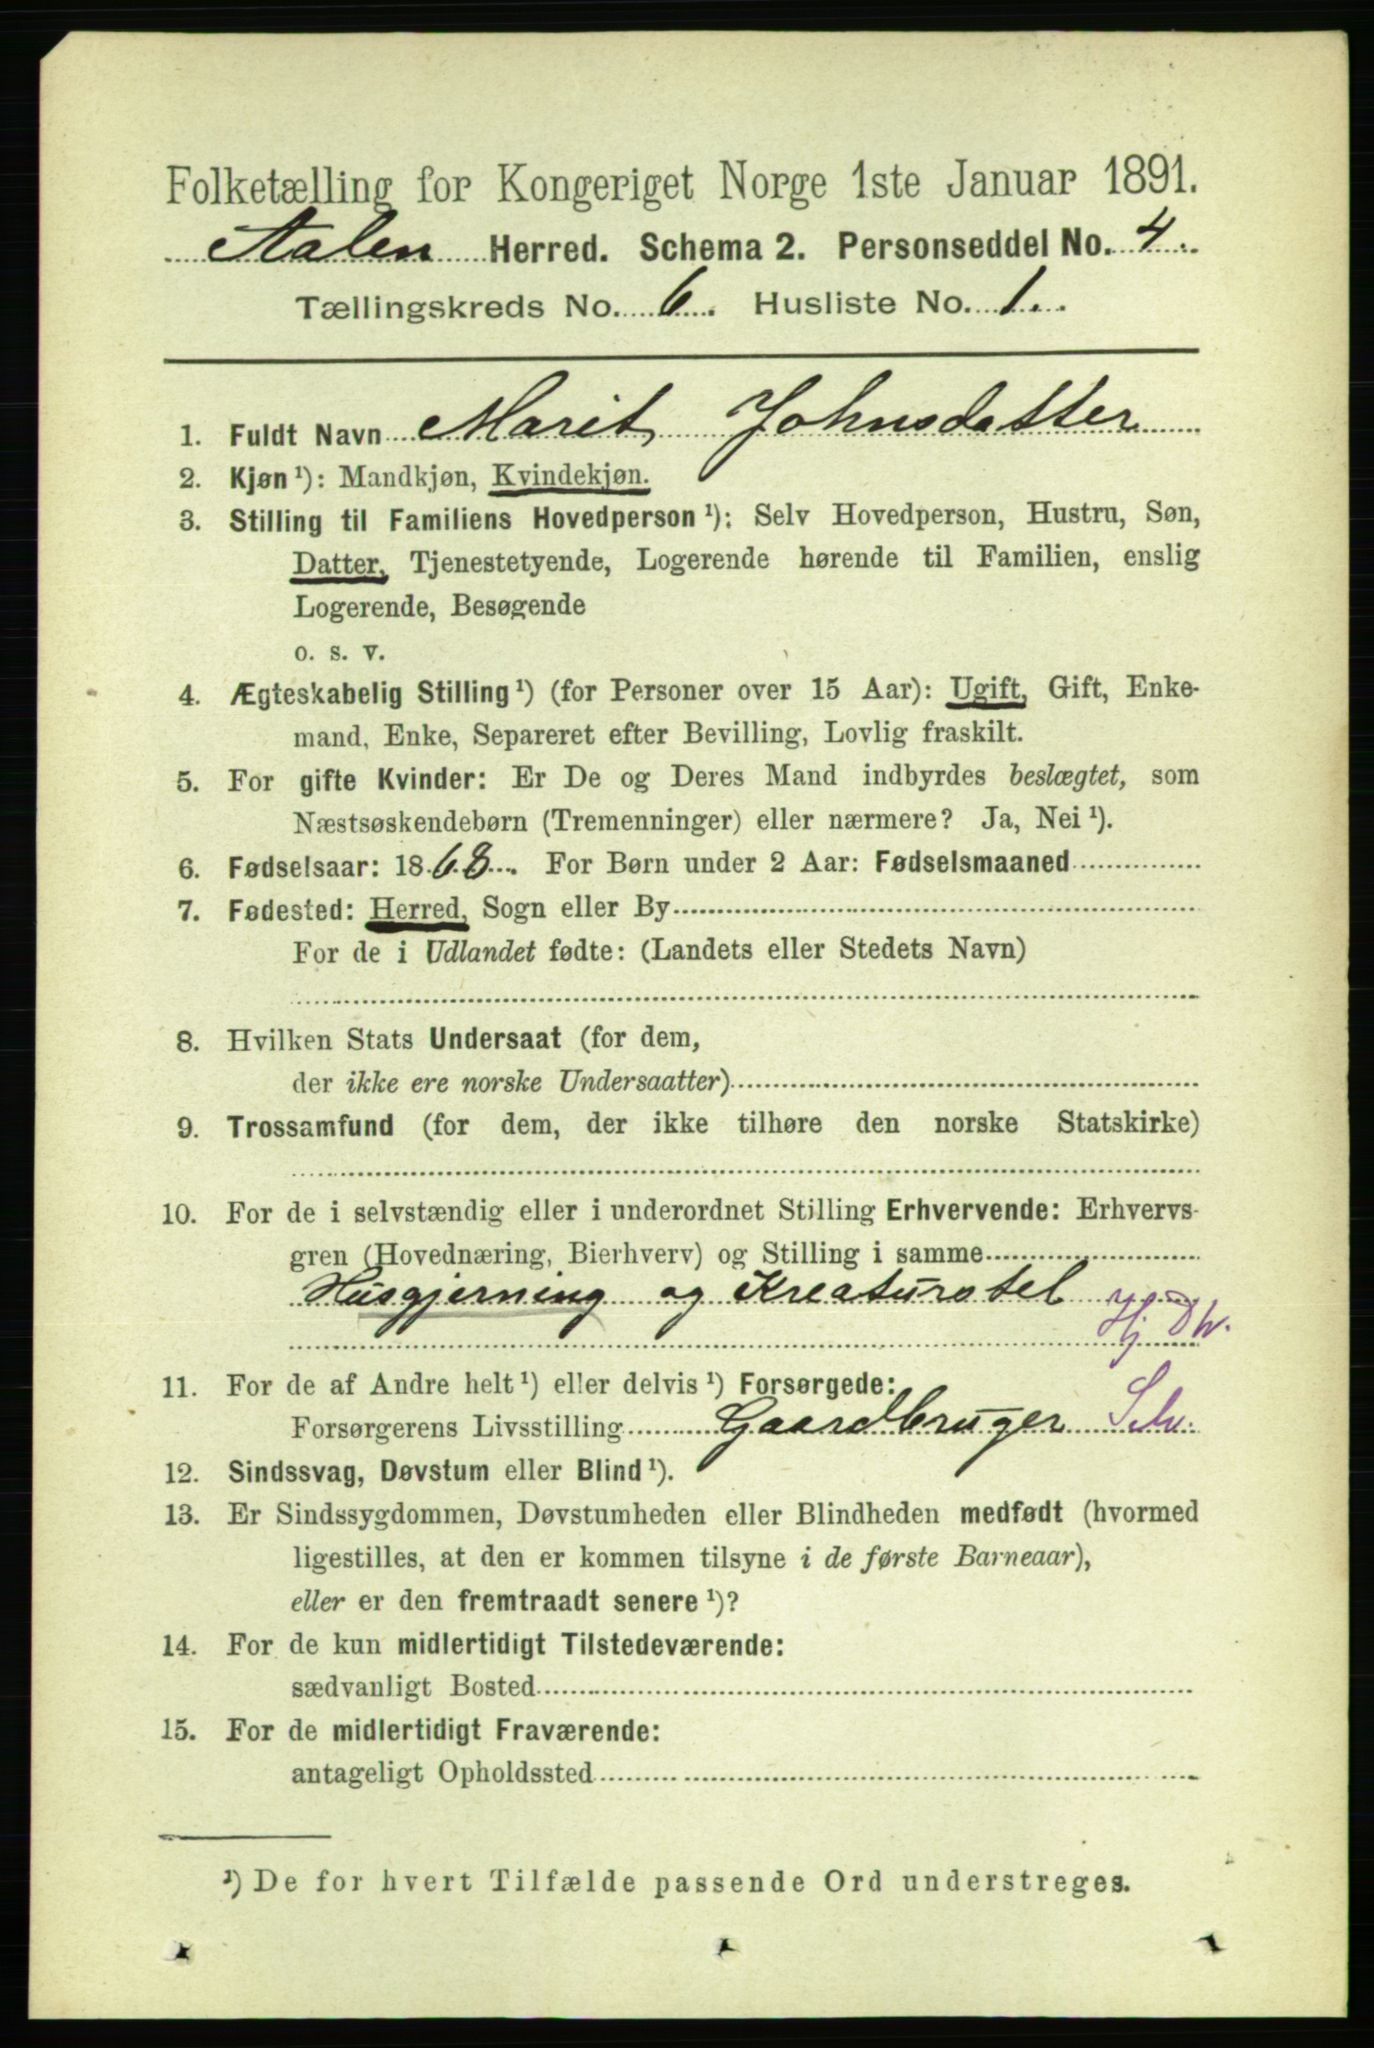 Folketælling for Kongeriget Norge 1ste Januar 1891.
Aalen Herred. Schema 2. Personseddel No. 4.
Tællingskreds No. 6. Husliste No. 1.
1. Fuldt Navn Marit Johnsdatter
2. Kjøn ¹): Mandkjøn, Kvindekjøn.
3. Stilling til Familiens Hovedperson ¹): Selv Hovedperson, Hustru, Søn,
Datter, Tjenestetyende, Logerende hørende til Familien, enslig
Logerende, Besøgende
o. s. v.
4. Ægteskabelig Stilling ¹) (for Personer over 15 Aar): Ugift, Gift, Enke-
mand, Enke, Separeret efter Bevilling, Lovlig fraskilt.
5. For gifte Kvinder: Er De og Deres Mand indbyrdes beslægtet, som
Næstsøskendebørn (Tremenninger) eller nærmere? Ja, Nei ¹).
6. Fødselsaar: 1868. For Børn under 2 Aar: Fødselsmaaned
7. Fødested: Herred, Sogn eller By
For de i Udlandet fødte: (Landets eller Stedets Navn)
8. Hvilken Stats Undersaat (for dem,
der ikke ere norske Undersaatter)
9. Trossamfund (for dem, der ikke tilhøre den norske Statskirke)
10. For de i selvstændig eller i underordnet Stilling Erhvervende: Erhvervs-
gren (Hovednæring, Bierhverv) og Stilling i samme
Husgjerning og Kreaturstel
11. For de af Andre helt ¹) eller delvis ¹) Forsørgede:
Forsørgerens Livsstilling Gaardbruger Selv.
12. Sindssvag, Døvstum eller Blind ¹).
13. Er Sindssygdommen, Døvstumheden eller Blindheden medfødt (hvormed
ligestilles, at den er kommen tilsyne i de første Barneaar),
eller er den fremtraadt senere ¹)?
14. For de kun midlertidigt Tilstedeværende:
sædvanligt Bosted
15. For de midlertidigt Fraværende:
antageligt Opholdssted
¹) De for hvert Tilfælde passende Ord understreges.